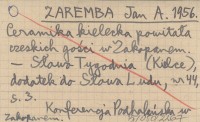 ZAREMBA Jan A. 1956.
Ceramika kielecka powitała
czeskich gości w Zakopanem.
— Słowo Tygodnia (Kielce),
dodatek do Słowa Ludu, nr 44,
s. 3.
Konferencja Podhalańska w
Zakopanem.